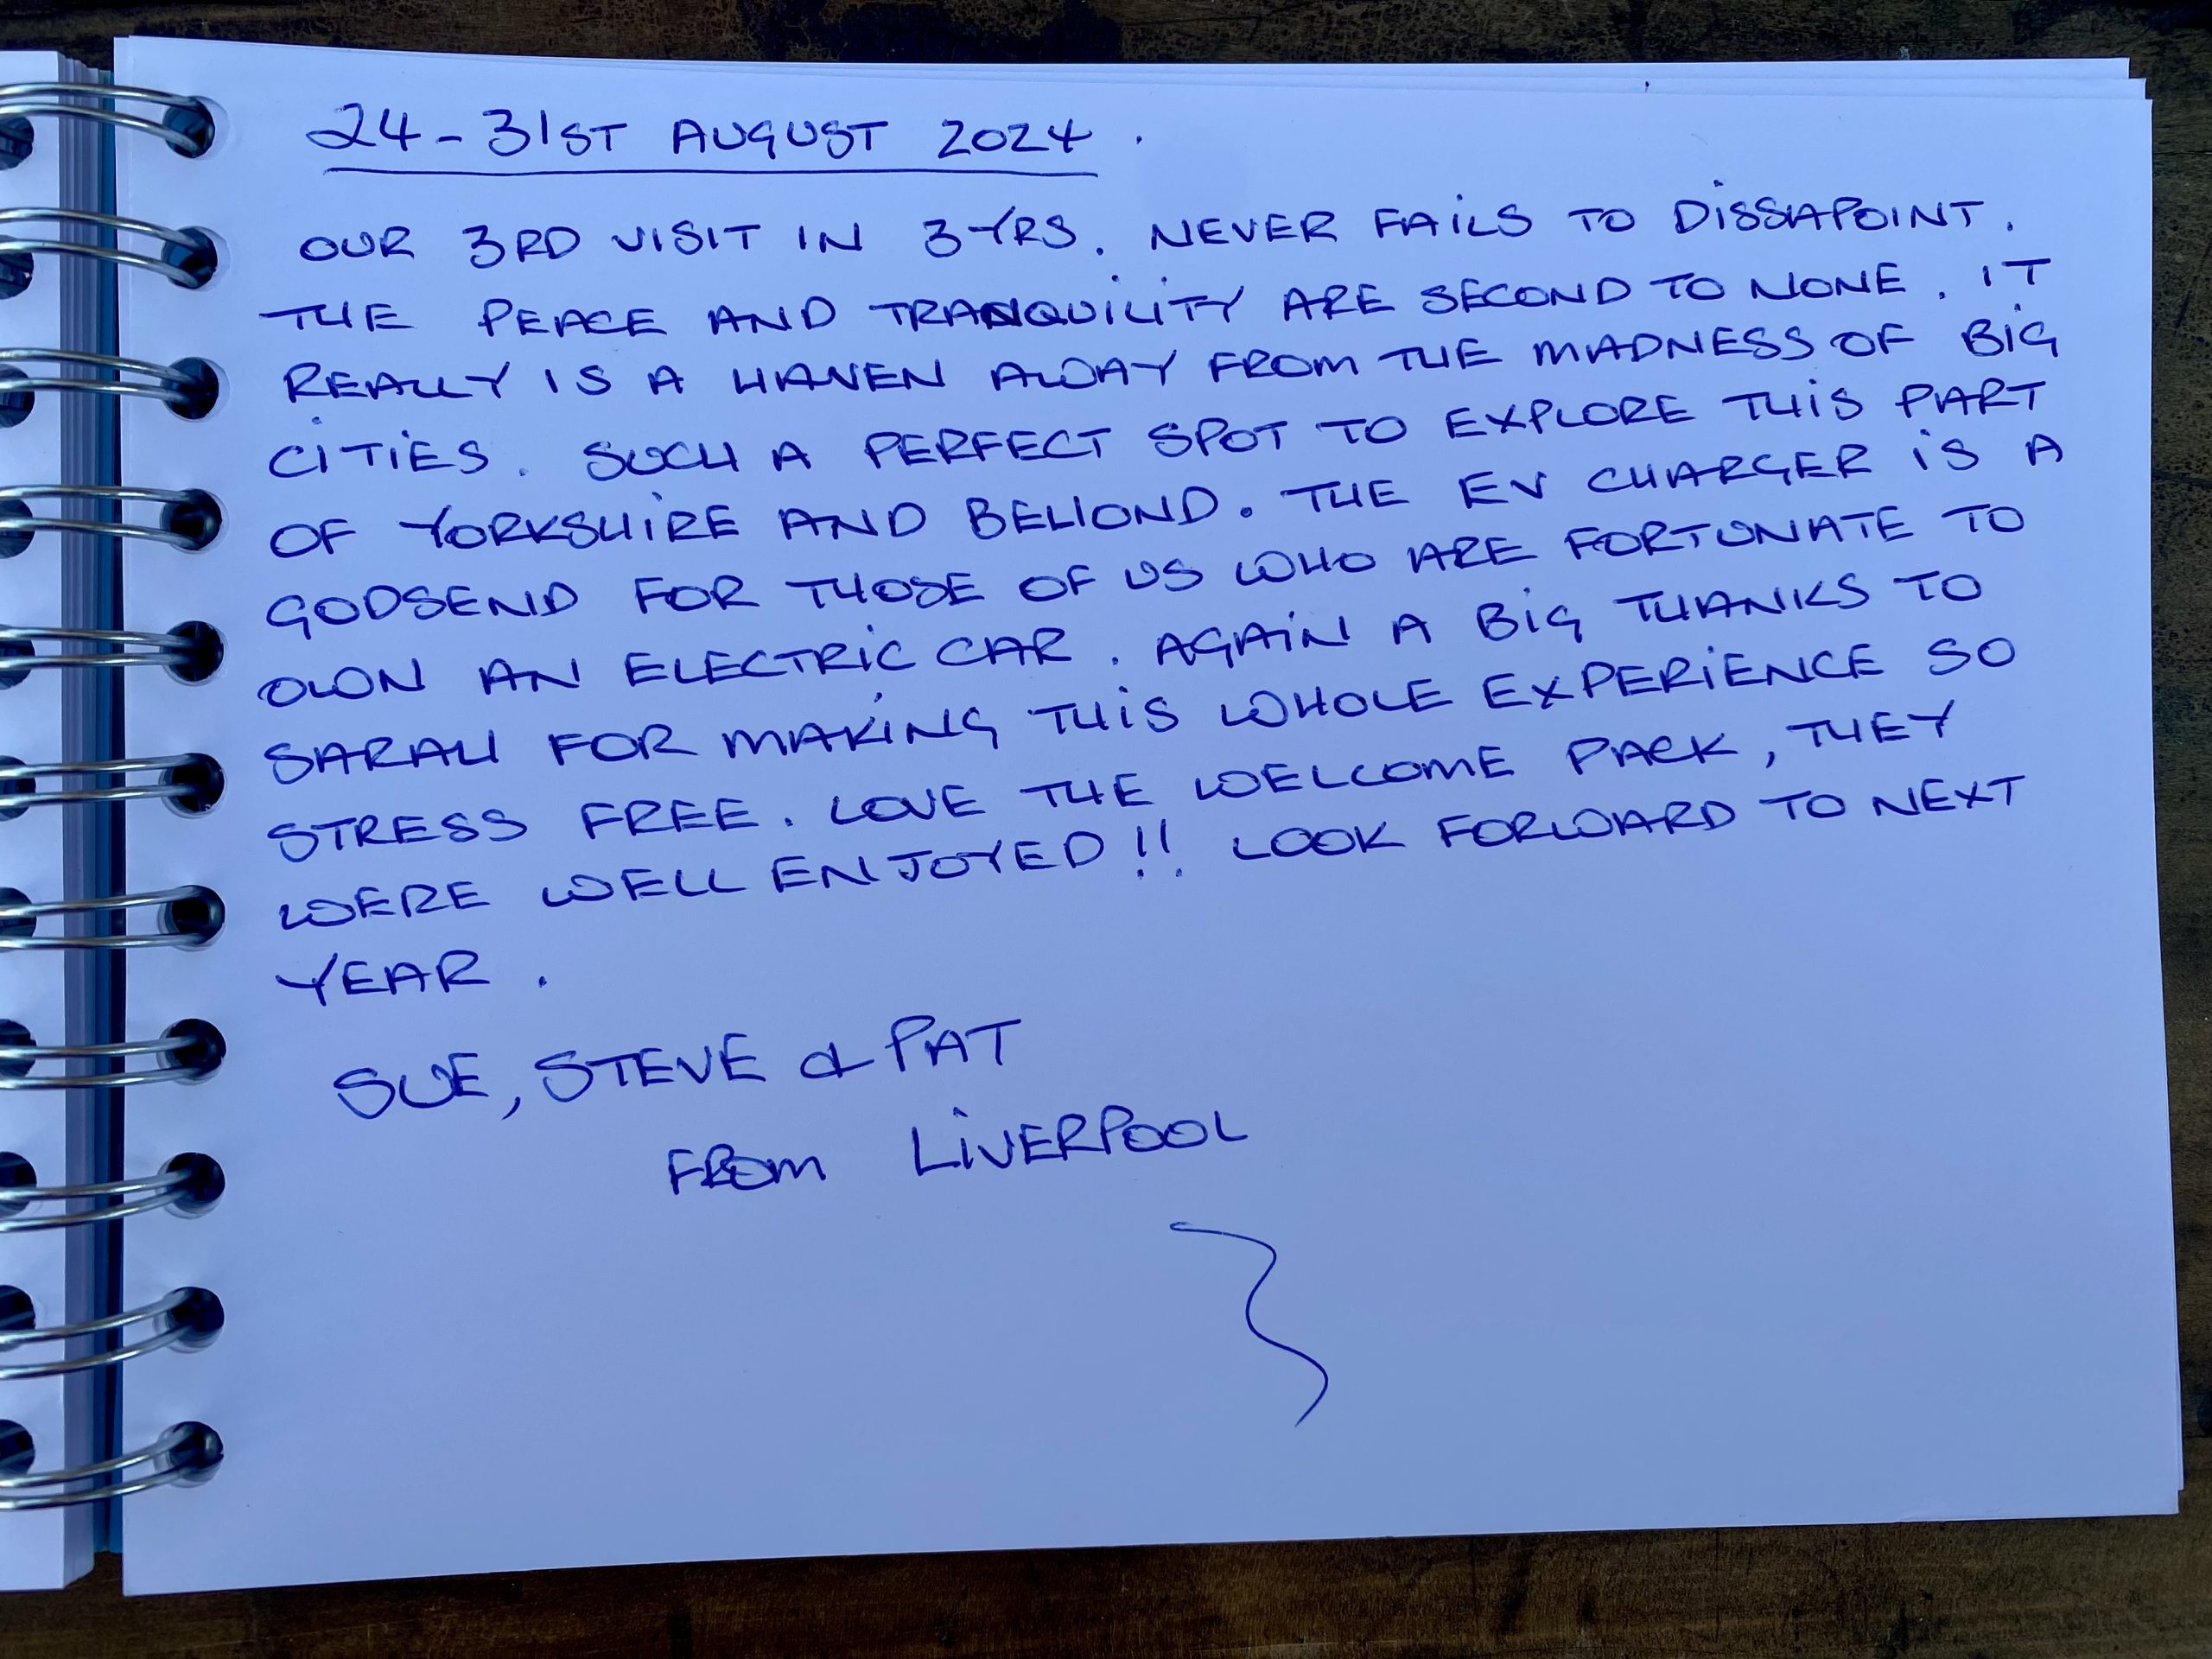 24 - 31ST AUGUST 2024.
OUR 3RD VISIT IN 3YRS. NEVER FAILS TO DISSAPOINT.
THE PEACE AND TRANQUILITY ARE SECOND TO NONE. IT
REALLY IS A HAVEN AWAY FROM THE MADNESS OF BIG
CITIES. SUCH A PERFECT SPOT TO EXPLORE THIS PART
OF YORKSHIRE AND BEHOND. THE EV CHARGER IS A
GODSEND FOR THOSE OF US WHO ARE FORTUNATE TO
OWN AN ELECTRIC CAR. AGAIN A BIG THANKS TO
SARAH FOR MAKING THIS WHOLE EXPERIENCE SO
STRESS FREE. LOVE THE WELCOME PACK, THEY
WERE WELL ENJOYED!! LOOK FORWARD TO NEXT
YEAR.
SUE, STEVE & PAT
FROM LIVERPOOL